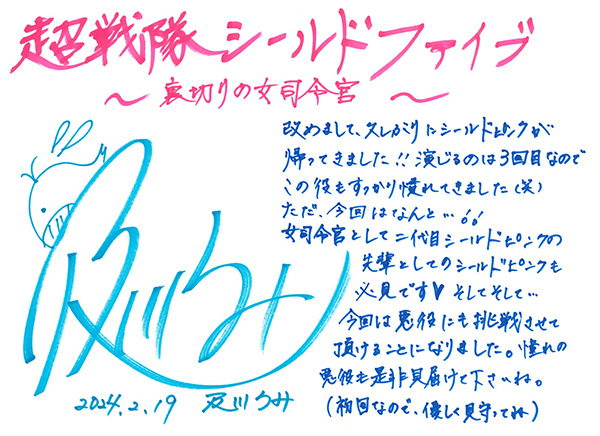 超戦隊シールドファイブ
～裏切りの女司令官～
改めまして、久しぶりにシールドピンクが
帰ってきました!! 演じるのは3回目なので
この役もすっかり慣れてきました(笑)
ただ、今回はなんと…!!
女司令官として二代目シールドピンクの
先輩としてのシールドピンクも
必見です♥ そしてそして…
今回は悪役にも挑戦させて
頂けることになりました。憧れの
悪役も是非見届けて下さいね。
(初回なので、優しく見守ってね)
及川うみ
2024.2.19 及川うみ